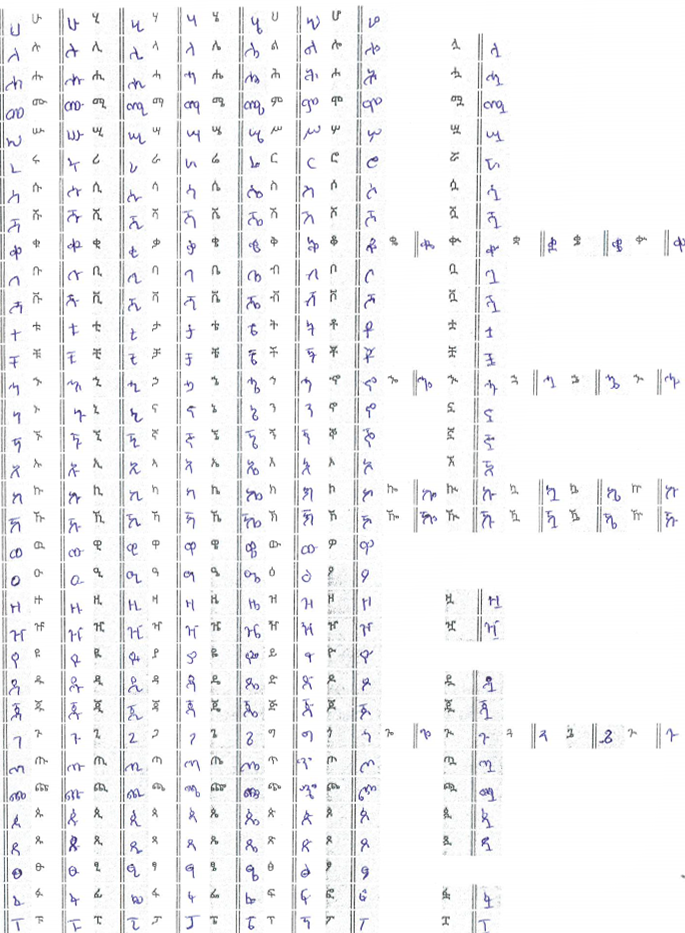 ሀ ሁ ሁ ሂ ሂ ሃ ሃ ሄ ሄ ህ ህ ሆ ሆ
ለ ሉ ሉ ሊ ሊ ላ ላ ሌ ሌ ል ል ሎ ሎ ሏ ሏ
ሐ ሑ ሑ ሒ ሒ ሓ ሓ ሔ ሔ ሕ ሕ ሖ ሖ ሗ ሗ
መ ሙ ሙ ሚ ሚ ማ ማ ሜ ሜ ም ም ሞ ሞ ሟ ሟ
ሠ ሡ ሡ ሢ ሢ ሣ ሣ ሤ ሤ ሥ ሥ ሦ ሦ ሧ ሧ
ረ ሩ ሩ ሪ ሪ ራ ራ ሬ ሬ ር ር ሮ ሮ ሯ ሯ
ሰ ሱ ሱ ሲ ሲ ሳ ሳ ሴ ሴ ስ ስ ሶ ሶ ሷ ሷ
ሸ ሹ ሹ ሺ ሺ ሻ ሻ ሼ ሼ ሽ ሽ ሾ ሾ ሿ ሿ
ቀ ቁ ቁ ቂ ቂ ቃ ቃ ቄ ቄ ቅ ቅ ቆ ቆ ቈ ቈ ቊ ቊ ቋ ቋ ቌ ቌ ቍ ቍ
በ ቡ ቡ ቢ ቢ ባ ባ ቤ ቤ ብ ብ ቦ ቦ ቧ ቧ
ቨ ቩ ቩ ቪ ቪ ቫ ቫ ቬ ቬ ቭ ቭ ቮ ቮ ቯ ቯ
ተ ቱ ቱ ቲ ቲ ታ ታ ቴ ቴ ት ት ቶ ቶ ቷ ቷ
ቸ ቹ ቹ ቺ ቺ ቻ ቻ ቼ ቼ ች ች ቾ ቾ ቿ ቿ
ኀ ኁ ኁ ኂ ኂ ኃ ኃ ኄ ኄ ኅ ኅ ኆ ኆ ኈ ኈ ኊ ኊ ኋ ኋ ኌ ኌ ኍ
ነ ኑ ኑ ኒ ኒ ና ና ኔ ኔ ን ን ኖ ኖ ኗ ኗ
ኘ ኙ ኙ ኚ ኚ ኛ ኛ ኜ ኜ ኝ ኝ ኞ ኞ ኟ ኟ
አ ኡ ኡ ኢ ኢ ኣ ኣ ኤ ኤ እ እ ኦ ኦ ኧ ኧ
ከ ኩ ኩ ኪ ኪ ካ ካ ኬ ኬ ክ ክ ኮ ኮ ኰ ኰ ኲ ኲ ኳ ኳ ኴ ኴ ኵ ኵ
ኸ ኹ ኹ ኺ ኺ ኻ ኻ ኼ ኼ ኽ ኽ ኾ ኾ ዀ ዀ ዂ ዂ ዃ ዃ ዄ ዄ ዅ ዅ
ወ ዉ ዉ ዊ ዊ ዋ ዋ ዌ ዌ ው ው ዎ ዎ
ዐ ዑ ዑ ዒ ዒ ዓ ዓ ዔ ዔ ዕ ዕ ዖ ዖ
ዘ ዙ ዙ ዚ ዚ ዛ ዛ ዜ ዜ ዝ ዝ ዞ ዞ ዟ ዟ
ዠ ዡ ዡ ዢ ዢ ዣ ዣ ዤ ዤ ዥ ዥ ዦ ዦ ዧ ዧ
የ ዩ ዩ ዪ ዪ ያ ያ ዬ ዬ ይ ይ ዮ ዮ
ደ ዱ ዱ ዲ ዲ ዳ ዳ ዴ ዴ ድ ድ ዶ ዶ ዷ ዷ
ጀ ጁ ጁ ጂ ጂ ጃ ጃ ጄ ጄ ጅ ጅ ጆ ጆ ጇ ጇ
ገ ጉ ጉ ጊ ጊ ጋ ጋ ጌ ጌ ግ ግ ጎ ጎ ጐ ጐ ጒ ጒ ጓ ጓ ጔ ጔ ጕ ጕ
ጠ ጡ ጡ ጢ ጢ ጣ ጣ ጤ ጤ ጥ ጥ ጦ ጦ ጧ ጧ
ጨ ጩ ጩ ጪ ጪ ጫ ጫ ጬ ጬ ጭ ጭ ጮ ጮ ጯ ጯ
ጰ ጱ ጱ ጲ ጲ ጳ ጳ ጴ ጴ ጵ ጵ ጶ ጶ ጷ ጷ
ጸ ጹ ጹ ጺ ጺ ጻ ጻ ጼ ጼ ጽ ጽ ጾ ጾ ጿ ጿ
ፀ ፁ ፁ ፂ ፂ ፃ ፃ ፄ ፄ ፅ ፅ ፆ ፆ
ፈ ፉ ፉ ፊ ፊ ፋ ፋ ፌ ፌ ፍ ፍ ፎ ፎ ፏ ፏ
ፐ ፑ ፑ ፒ ፒ ፓ ፓ ፔ ፔ ፕ ፕ ፖ ፖ ፗ ፗ